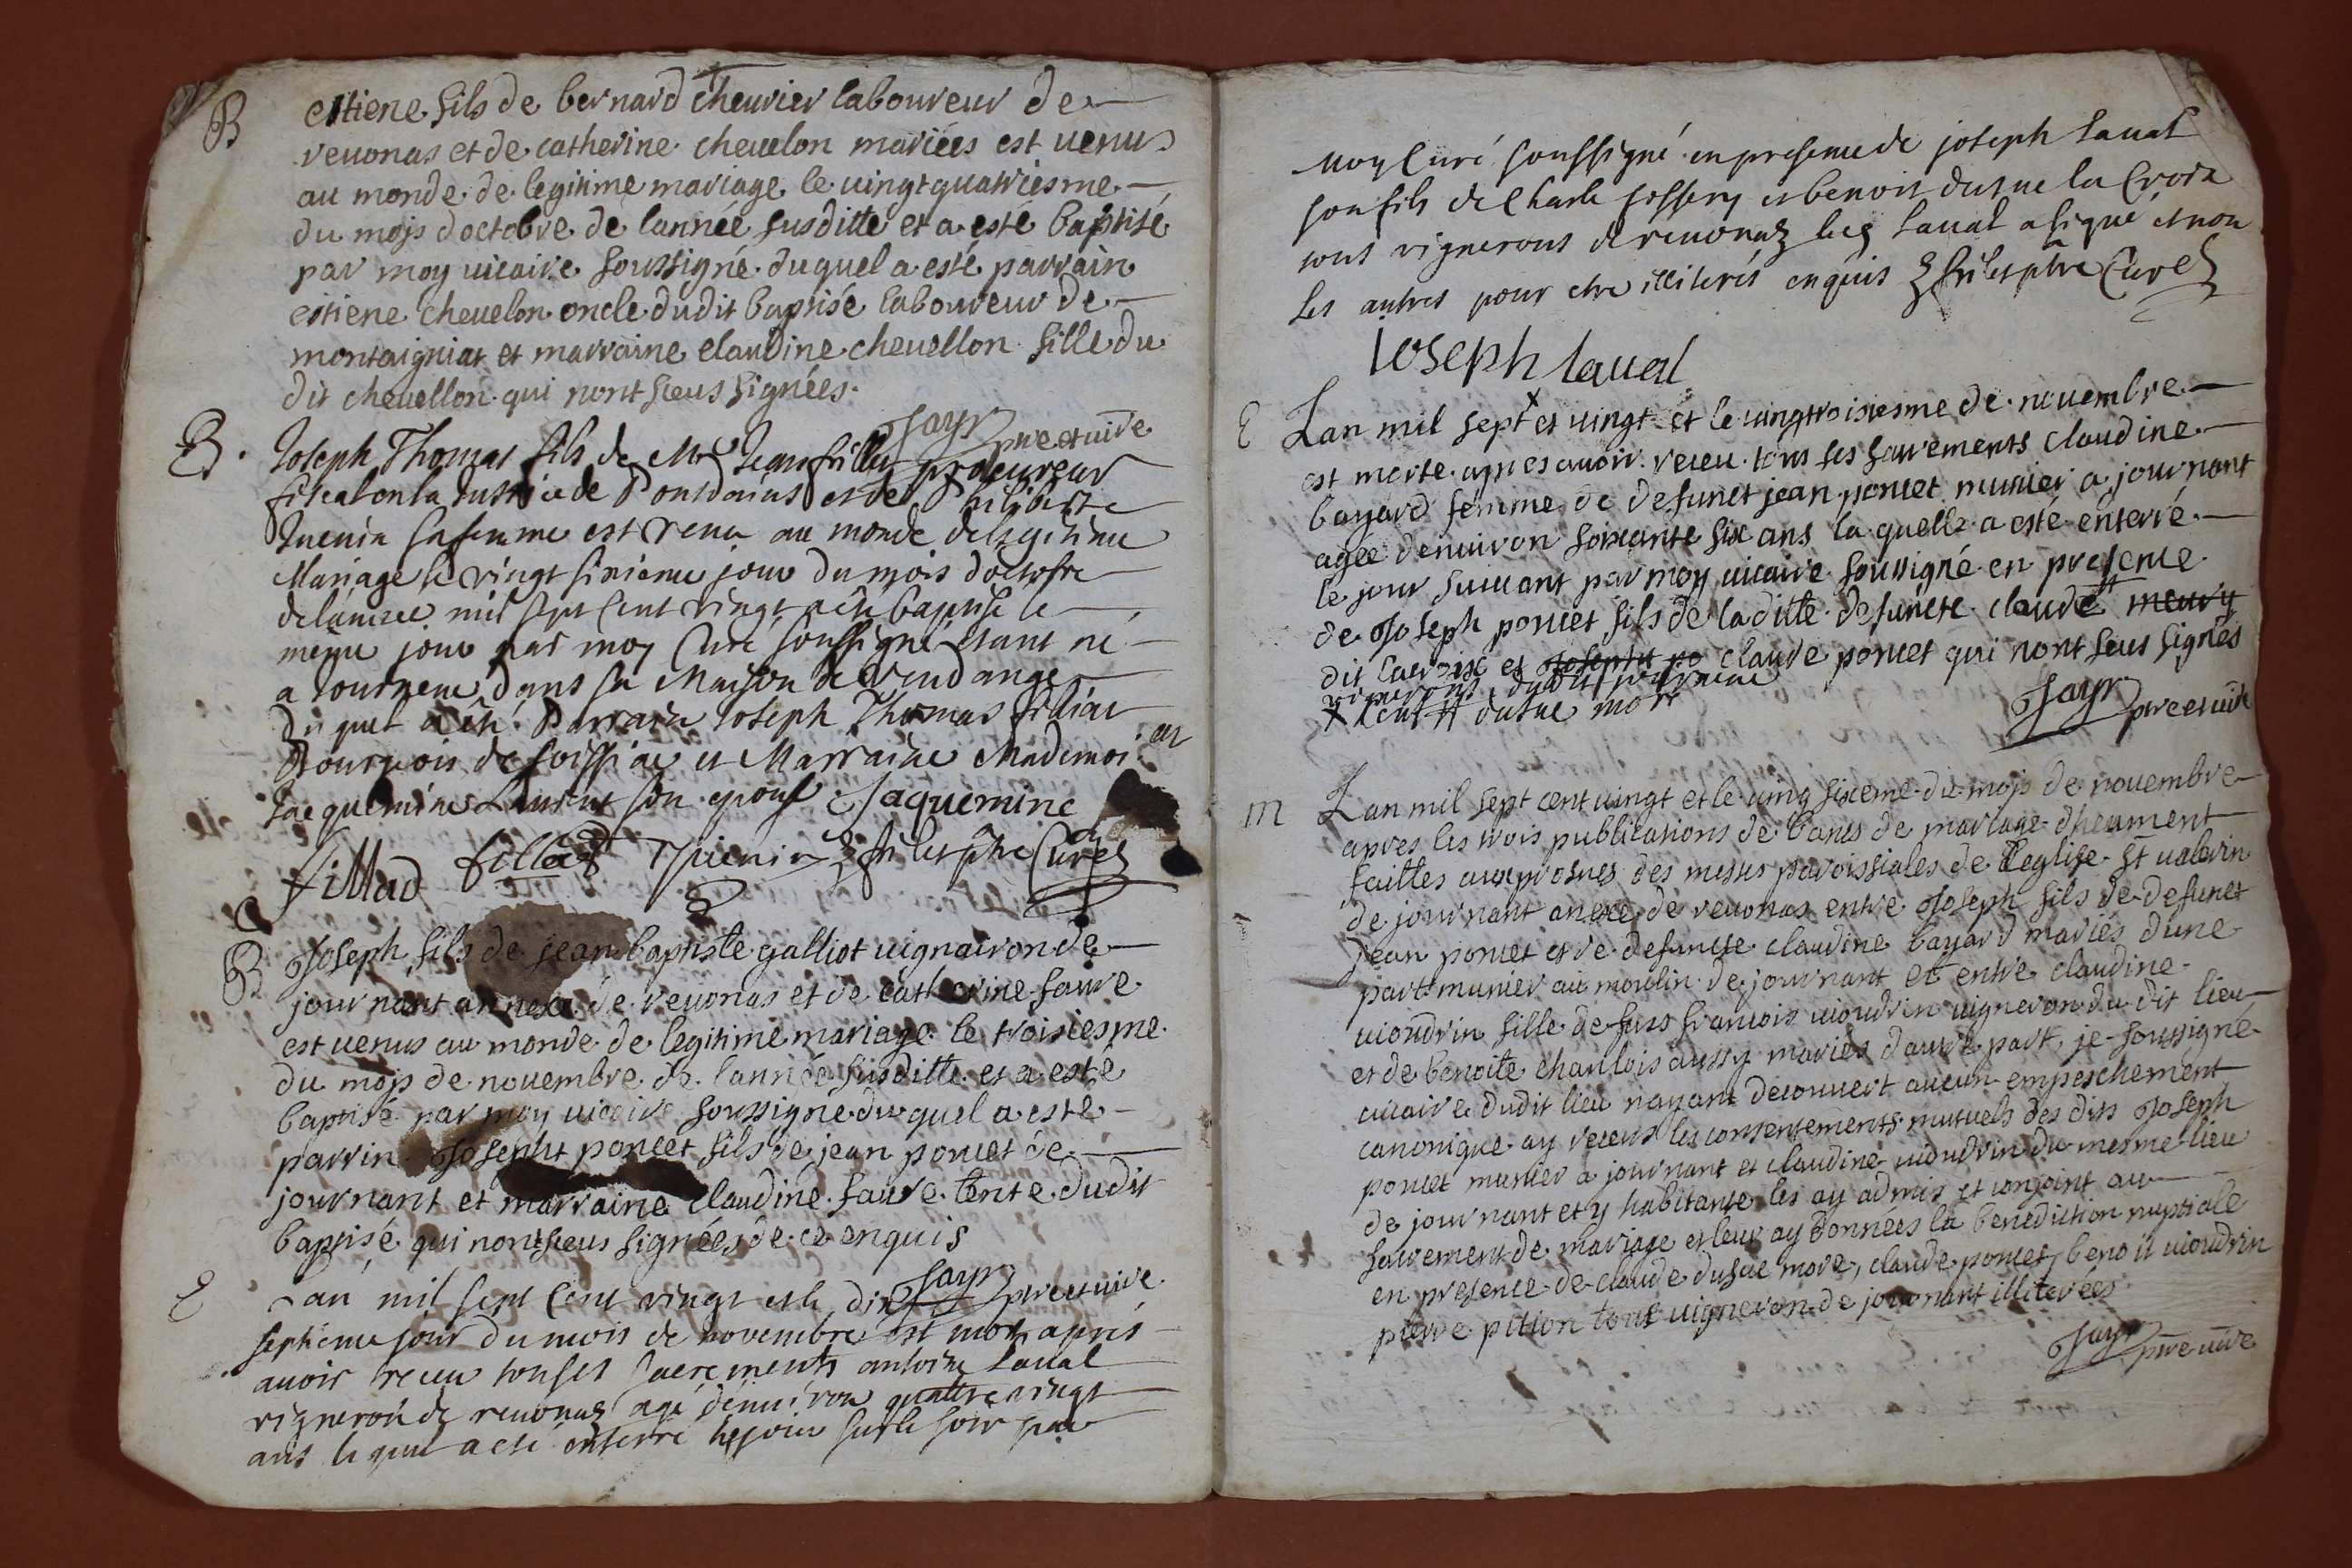 B estiene fils de bernard cheurier laboureur de
reuonas et de catherine cheuelon mariées est uenus
au monde de legitime mariage le uingt quatriesme
du mojs doctobre de lannée susditte et a esté baptisé
par moy uicaire soussigné duquel a esté parrain
estiene cheuelon oncle dudit baptisé laboureur de
montaigniat et marraine claudine cheuellon fille du
dit cheuellon qui nont sceus signées.
Jayr pre et uire
B. Joseph Thomas fils de Mre Jean filliat procureur
fiscal en la Justice de Pontdains et de Philiberte
Juenin sa femme est venu au monde de legitime
Mariage le vingt sixieme jour du mois d'octobre
de lannée mil sept cent vingt a été baptisé le
même jour par moy Curé soussigné étant né
a tournene dans sa Maison de Vendange
Du quel a été Parrain Joseph Thomas filliat
Bourgeois de et Marraine Mademoi
Jaquemine Laurent son epouse Jaquemine
filliad filliat Juenin pbre Curé
B Joseph fils de jean baptiste galliot uignairon de
journant annexe de reuonas et de catherine faure
est uenus au monde de legitime mariage le troisiesme
du mojs de nouembre de lannée susditte et a esté
baptisé par moy uicaire soussigné duquel a este
parrin Josepht poncet fils de jean poncet de
journant et marraine claudine faure tente dudit
baptisé qui nont sceus signées de ce enquis
Jayr pre et uire
E Lan mil sept cent vingt et le dix
septieme jour du mois de novembre est mort apres
auoir receu tous ses sacrements antoine Laual
vigneron de reuonas agé denuiron quattre vingt
ans le quel a été enterré le jour sur le soir par
moy Curé soussigné en presence de joseph Laual
son fils de Charle et benoit dusue la Croix
tous vignerons de reuonas led Laual a signé et non
les autres pour etre illiterés enquis pbre Curé
Joseph laual
E Lan mil sept X et uingt et le uingtroisiesme de nouembre
est morte apres auoir receu tous ses sacrements claudine
bayard femme de defunct jean poncet munier a journant
agée denuiron soixante six ans la quelle a esté enterré
le jour suiuant par moy uicaire soussigné en presence
de Joseph poncet fils de laditte defuncte claude # meury
dit lacroix et Josepht po claude poncet qui nont seus signés
vignerons dudit journant
X cent # dusue mort
Jayr pre et uire
m Lan mil sept cent uingt et le uing sixeme du mojs de nouembre
apres les trois publications de bancs de mariage dheument
faittes aux prosnes des messes paroissiales de leglise St ualerin
de journant anexe de reuonas entre Joseph fils de defunct
jean poncet et de defuncte claudine bayard mariés dune
part munier au moulin de journant et entre claudine
uioudrin fille de francois uioudrin uigneron du dit lieu
et de benoite chanlois aussy mariés dautre part, je soussigné
uicaire dudit lieu nayant decouuert aucun empeschement
canonique ay receus les consentements mutuels des dits Joseph
poncet munier a journant et claudine uioudrin du mesme lieu
de journant et y habitante les ay admis et conjoint au
sacrement de mariage et leur ay données la benediction nuptiale
en presence de claude dusue more, claude poncet, benoit uioudrin
pierre pition tous uigneron de journant illiterées
Jayr pre uire